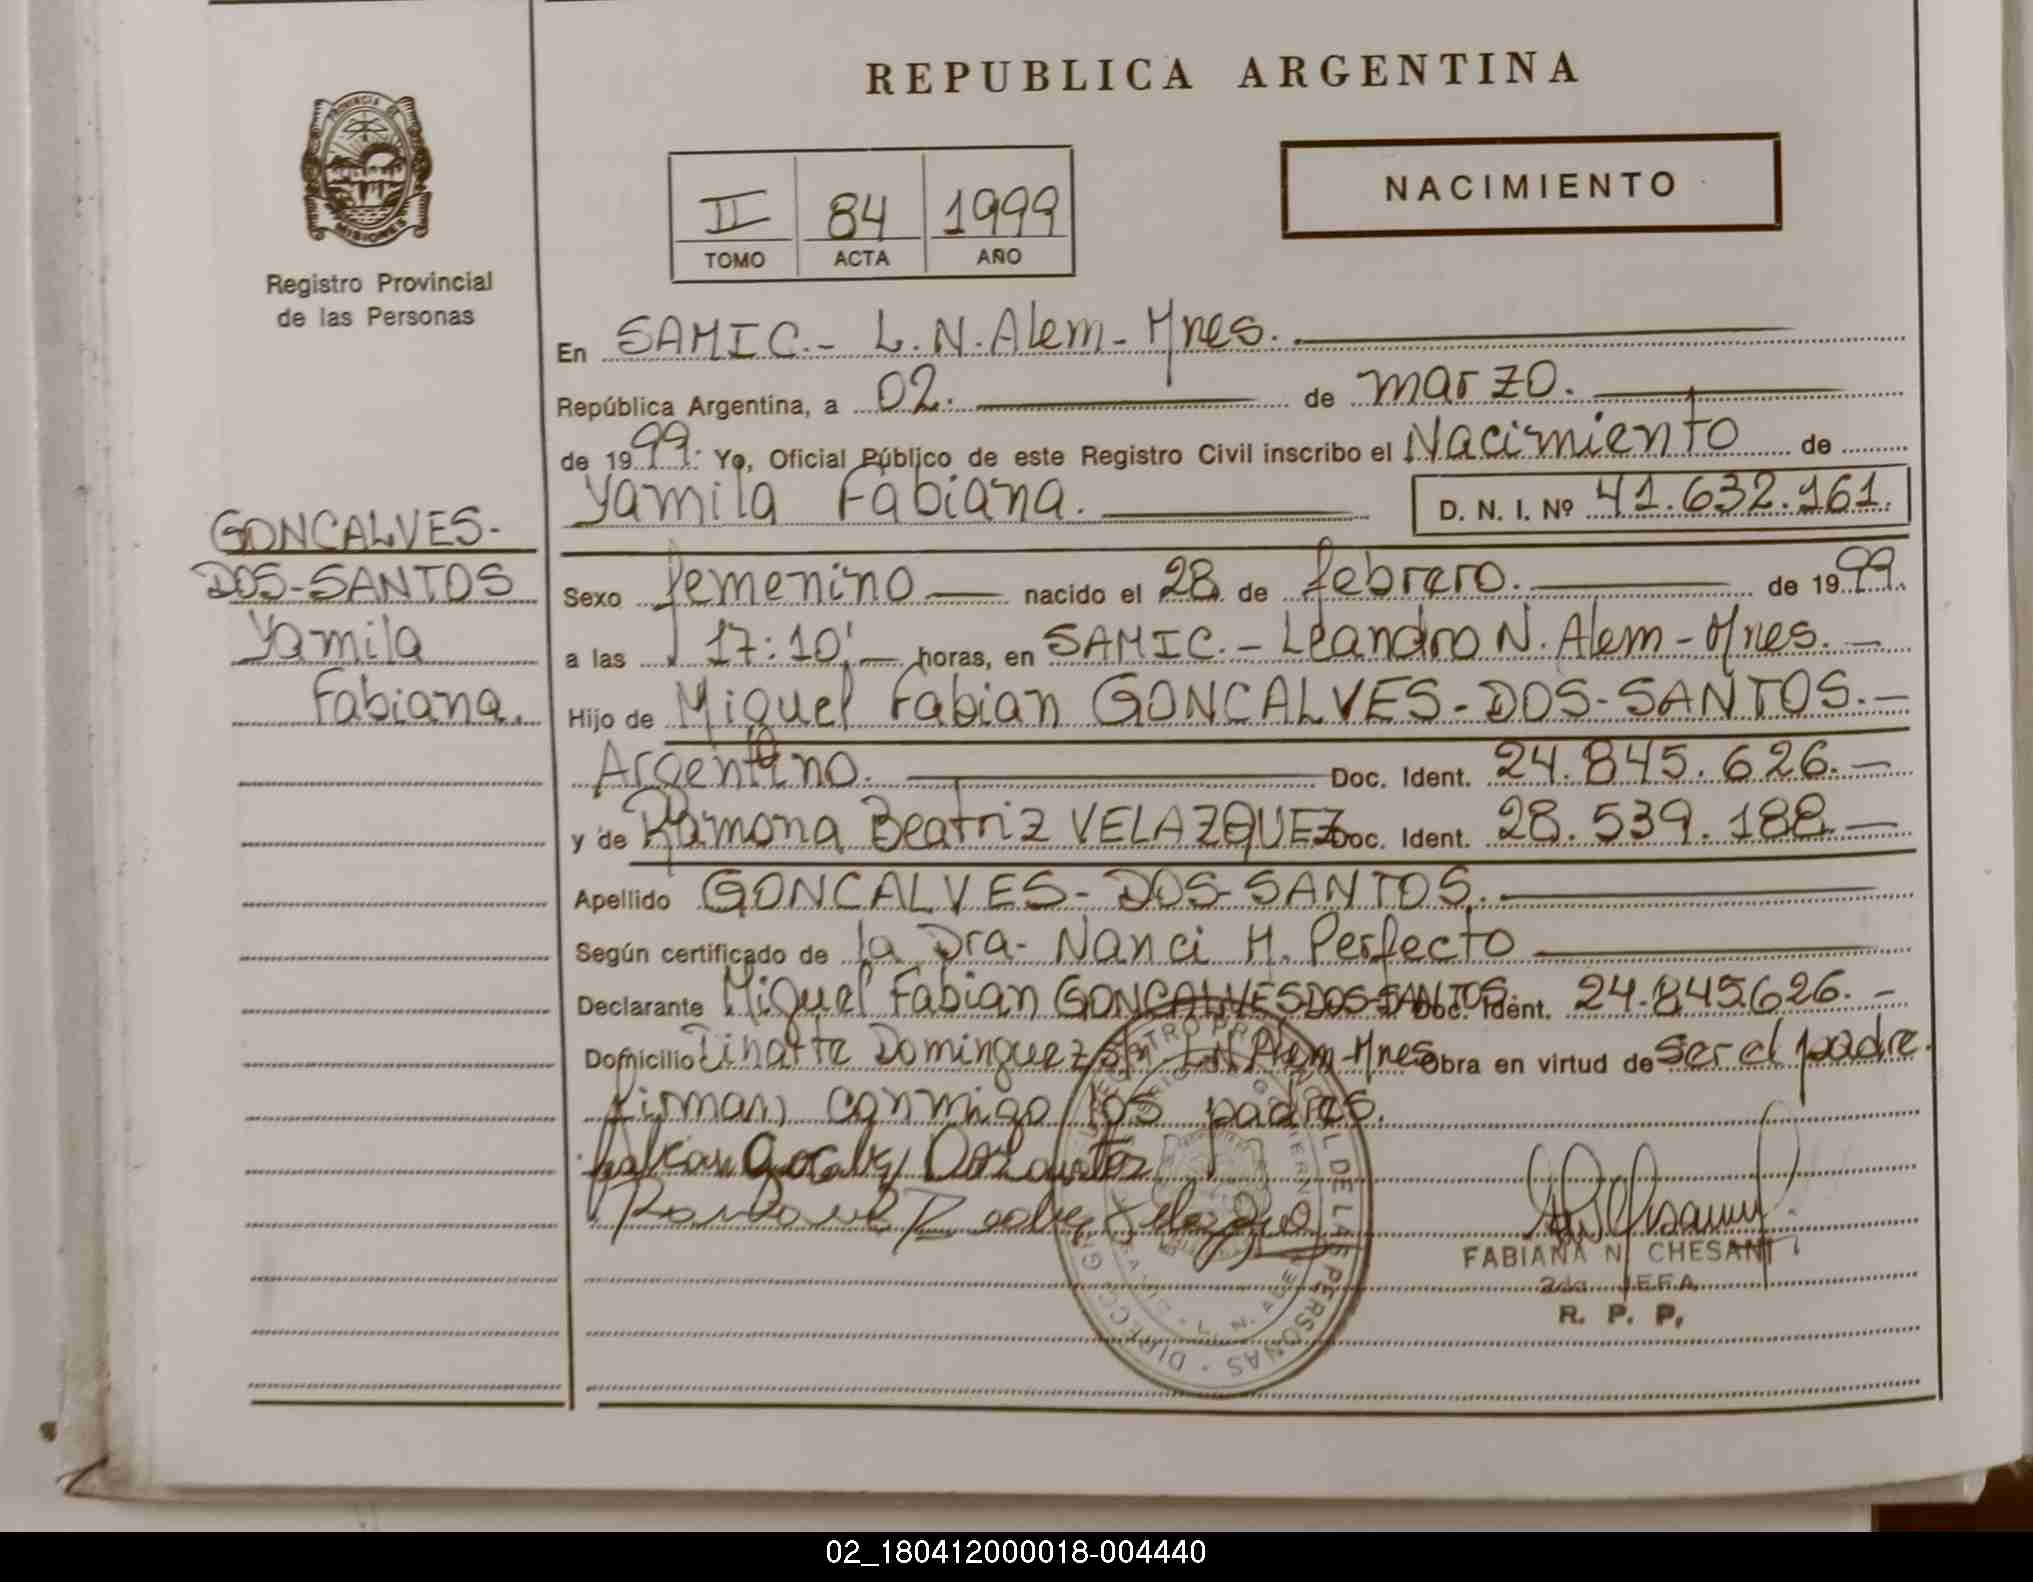 REPUBLICA ARGENTINA
PROVINCIA DE
MISIONES
Registro Provincial
de las Personas
NACIMIENTO
II 84 1999
TOMO ACTA AÑO
En SAMIC.- L.N.Alem-Mnes.
República Argentina, a 02. de marzo.
de 1999: Yo, Oficial Público de este Registro Civil inscribo el Nacimiento de
Yamila Fabiana. D. N. I. Nº 41.632.161.
GONCALVES-
DOS-SANTOS
Yamila
Fabiana.
Sexo femenino nacido el 28 de febrero. de 1999.
a las 17:10'. horas, en SAMIC.- Leandro N. Alem-Mnes.-
Hijo de Miguel Fabian GONCALVES-DOS-SANTOS.-
Argentino. Doc. Ident. 24.845.626.-
y de Ramona Beatriz VELAZQUEZ Doc. Ident. 28.539.188-
Apellido GONCALVES-DOS-SANTOS.
Según certificado de la Dra- Nanci H. Perfecto
Declarante Miguel Fabian GONCALVES DOS-SANTOS. Doc. Ident. 24.845.626.-
Domicilio Dominguez L.N.Alem-Mnes Obra en virtud de ser el padre.
firman conmigo los padres.
FABIANA N. CHESANI
2da. JEFA
R. P. P.
02_180412000018-004440